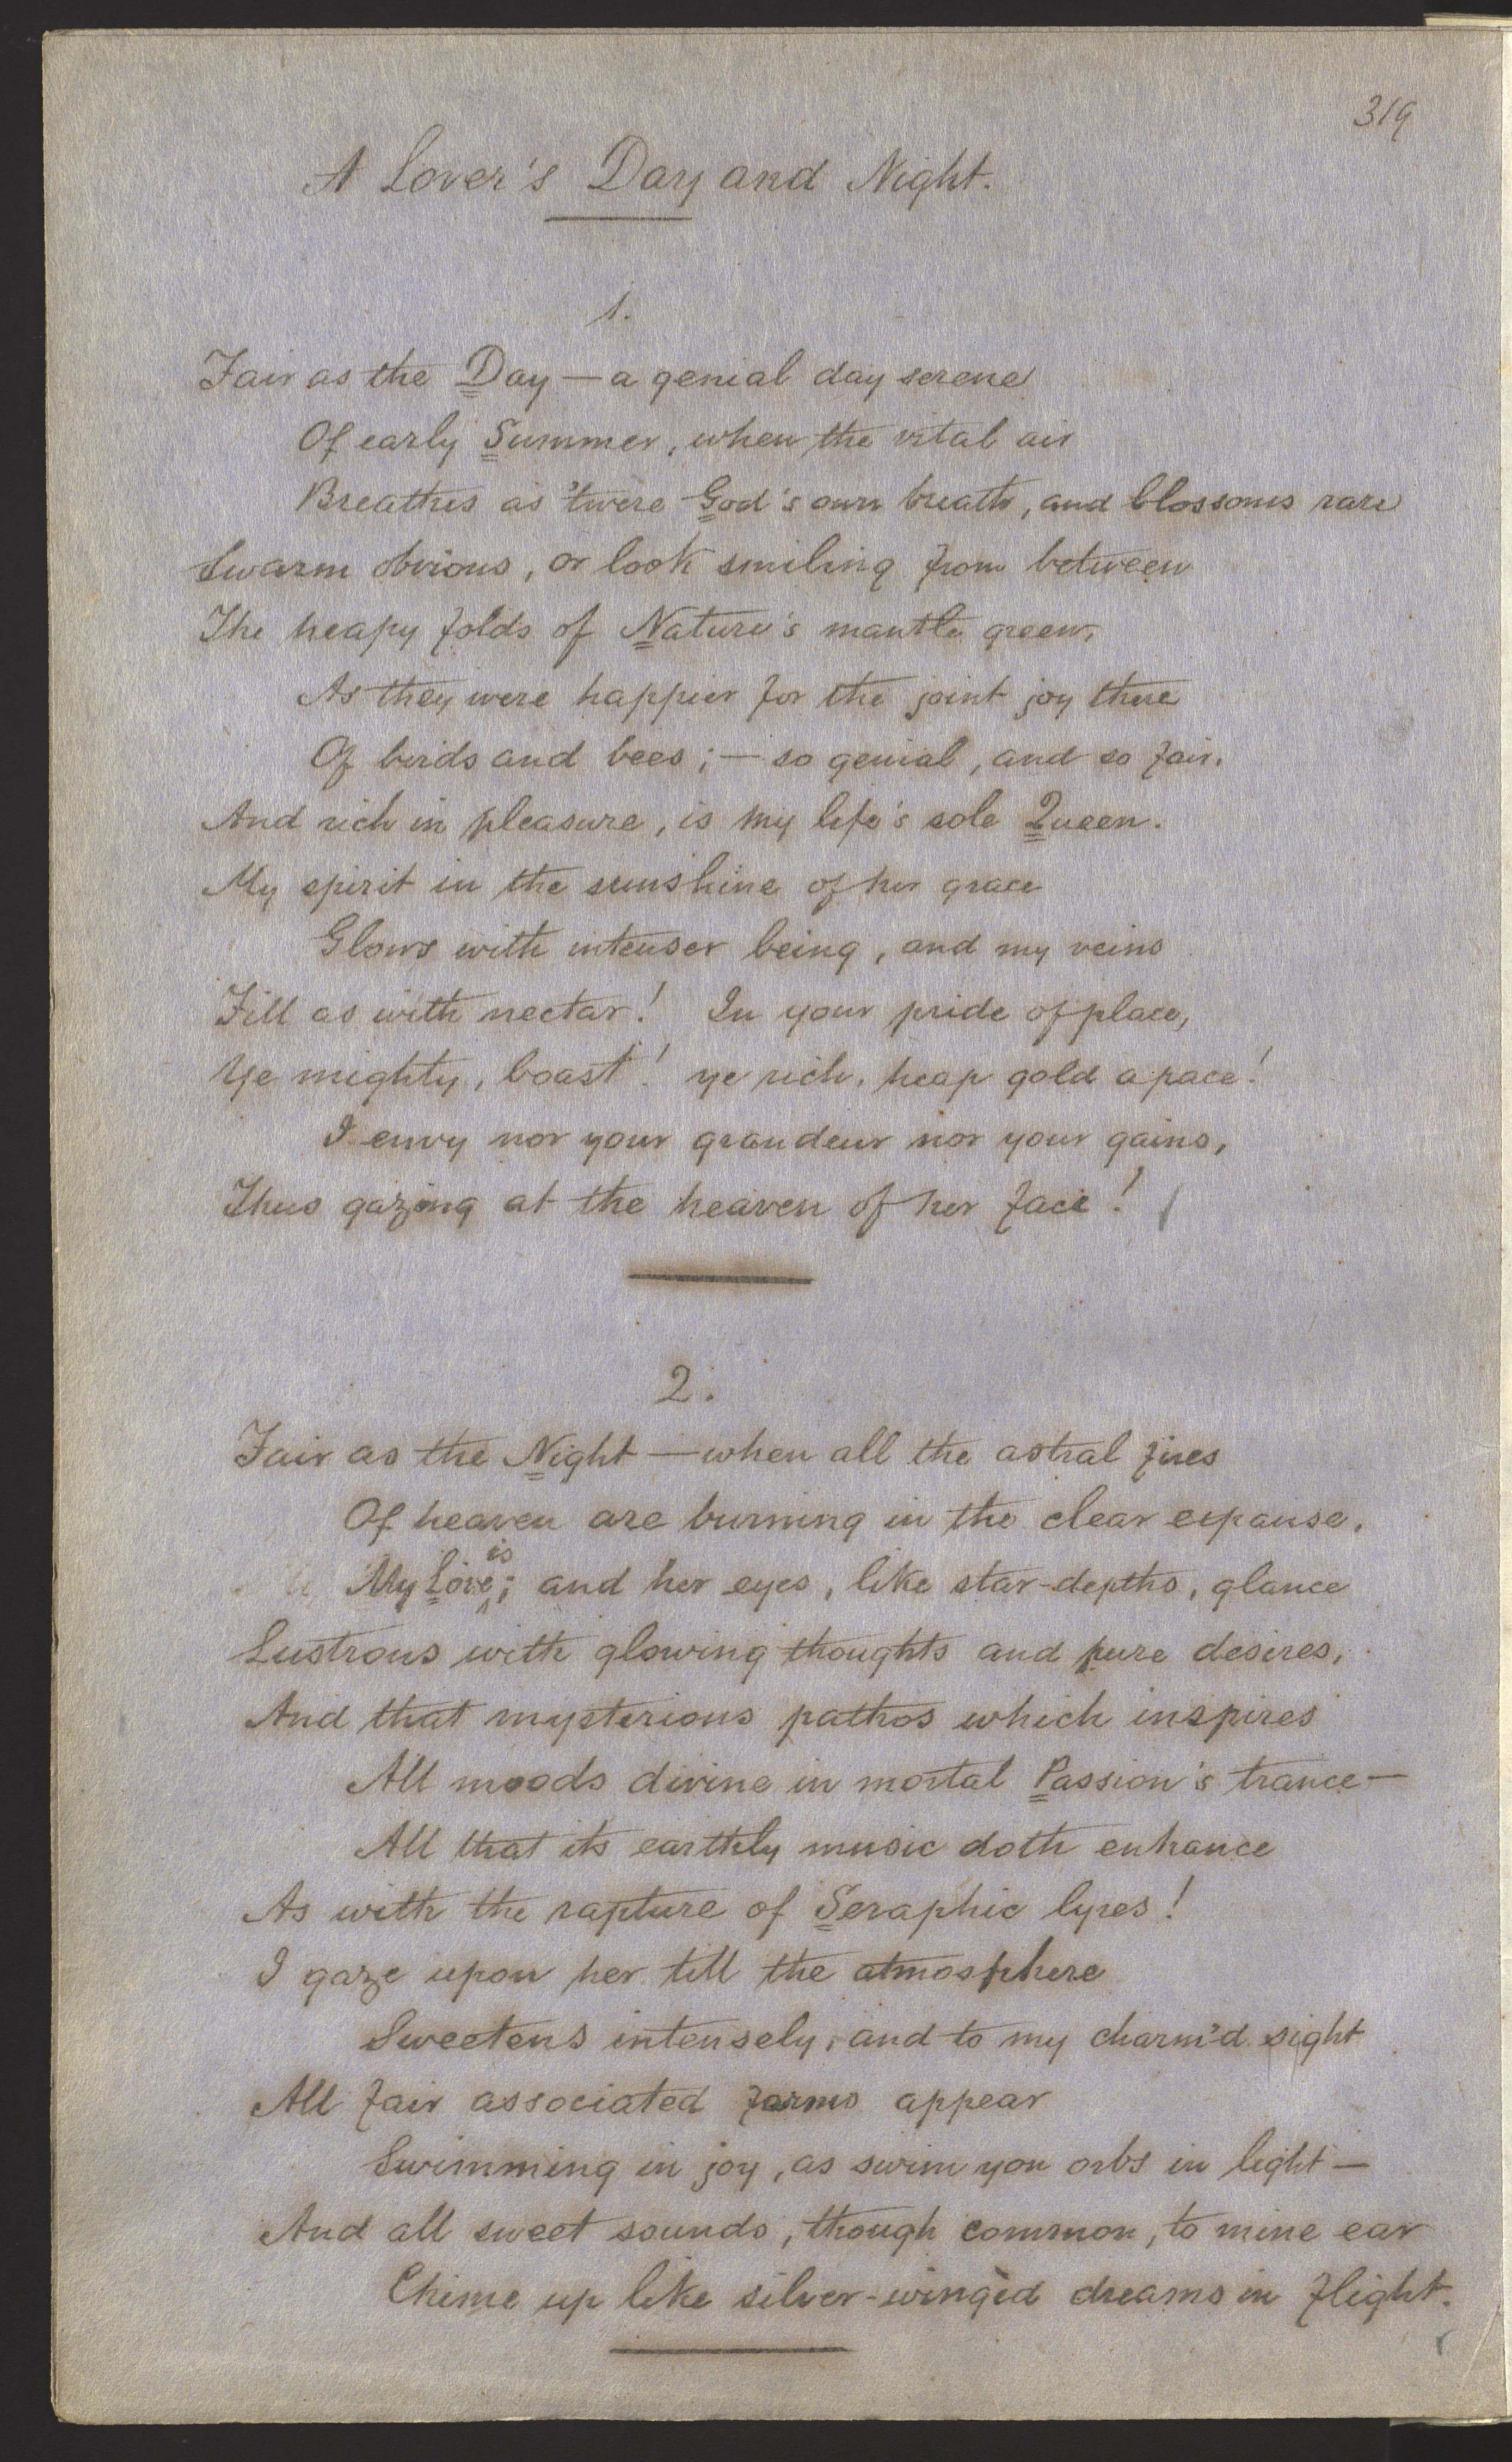 319
A Lover's Day and Night.
1.
Fair as the Day — a genial day serene
Of early Summer, when the vital air
Breathes as 'twere God's own breath, and blossoms rare
Swarm obvious, or look smiling from between
The heapy folds of Nature's mantle green,
As they were happier for the joint joy there
Of birds and bees; — so genial, and so fair,
And rich in pleasure, is my life's sole Queen.
My spirit in the sunshine of her grace
Glows with intenser being, and my veins
Fill as with nectar! In your pride of place,
Ye mighty, boast! ye rich, heap gold apace!
I envy nor your grandeur nor your gains,
Thus gazing at the heaven of her face!
2.
Fair as the Night — when all the astral fires
Of heaven are burning in the clear expanse,
My Love is; and her eyes, like star-depths, glance
Lustrous with glowing thoughts and pure desires,
And that mysterious pathos which inspires
All moods divine in mortal Passion's trance —
All that its earthly music doth enhance
As with the rapture of Seraphic lyres!
I gaze upon her till the atmosphere
Sweetens intensely, and to my charm'd sight
All fair associated forms appear
Swimming in joy, as swim yon orbs in light —
And all sweet sounds, though common, to mine ear
Chime up like silver-wingèd dreams in flight.